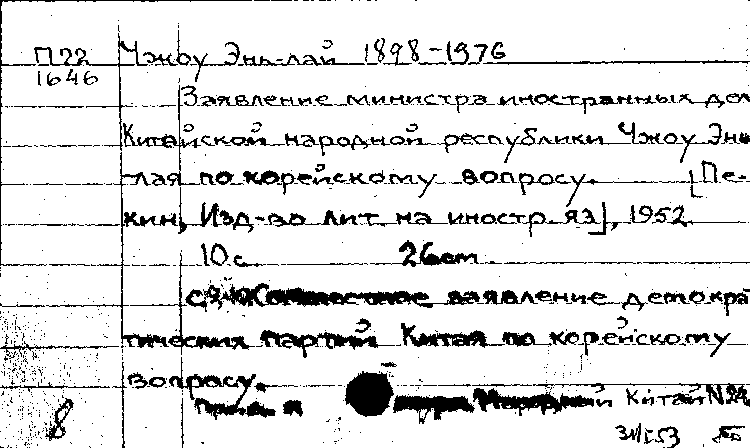 П22 Чжоу Энь-лай 1898-1976
1646
Заявление министра иностранных дел
Китайской народной республики Чжоу Энь
-лая по корейскому вопросу. [Пе-
кин, Изд-во лит. на иностр. яз], 1952.
10 с. 26 cm.
с. 9-10 Совместное заявление демокра
тических партий Китая по корейскому
вопросу.
Народный Китай N24,
8